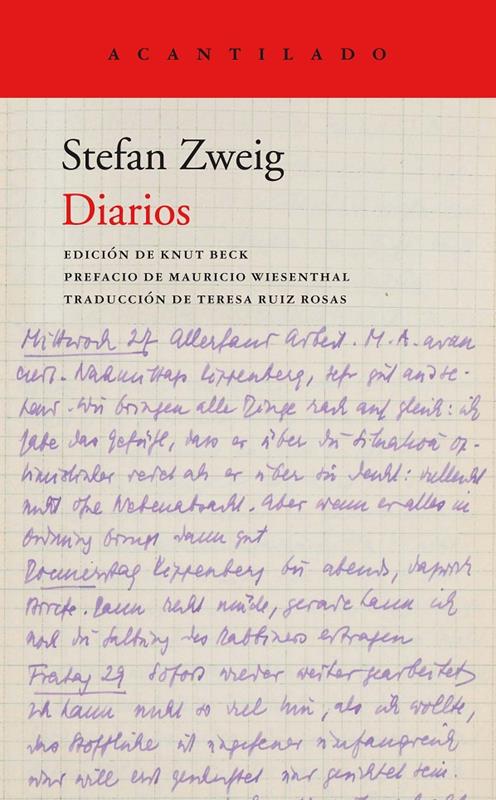 ACANTILADO
Stefan Zweig
Diarios
EDICIÓN DE KNUT BECK
PREFACIO DE MAURICIO WIESENTHAL
TRADUCCIÓN DE TERESA RUIZ ROSAS
Mittwoch 27 Allerhand Arbeit. M. A. avan
ciert. Nachmittags Kippenberg, sehr gut
Wir bringen alle Dinge rasch auf gleich: ich
habe das Gefühl, dass er über die Situation op-
timistischer redet als er über sie denkt: vielleicht
nicht ohne Nebenabsicht. Aber wenn er alles in
Ordnung bringt dann gut
Donnerstag Kippenberg bis abends,
Briefe. Dann recht müde, gerade kann ich
noch die des Rabbiners ertragen
Freitag 29 Sofort wieder weiter gearbeitet,
ich kann nicht so viel tun, als ich wollte,
das Stoffliche ist ungeheuer umfangreich
und will erst und gesichtet sein.